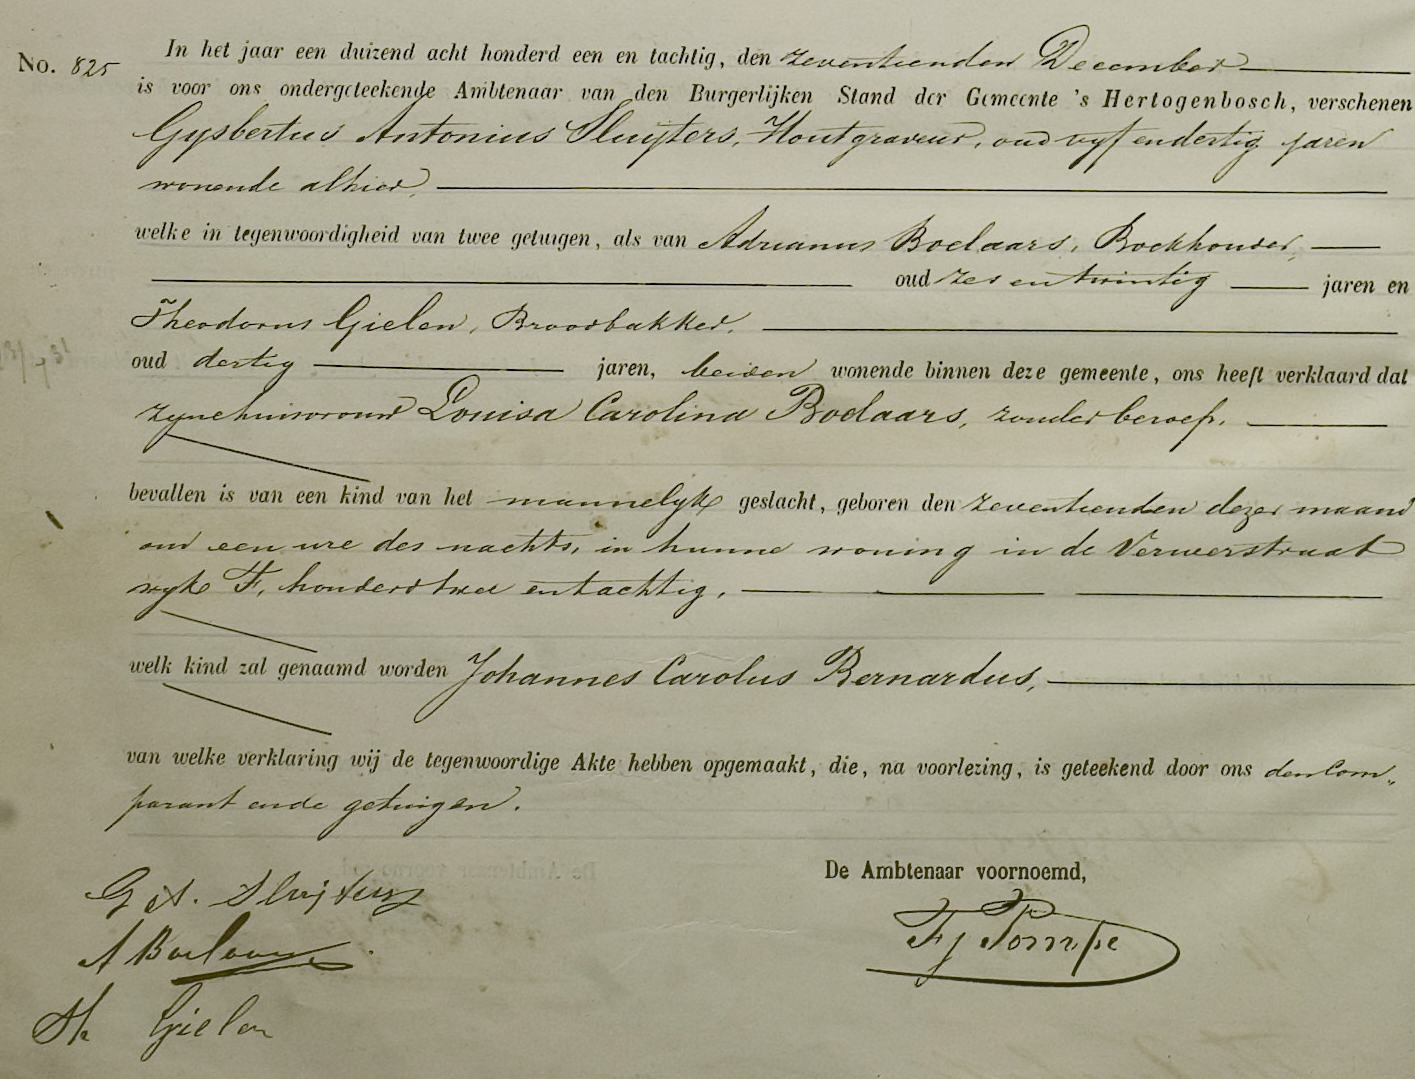 No. 825 In het jaar een duizend acht honderd een en tachtig, den zeventienden December
is voor ons ondergeteekende Ambtenaar van den Burgerlijken Stand der Gemeente 's Hertogenbosch, verschenen
Gysbertus Antonius Sluijters, Houtgraveur, oud vyf en dertig jaren
wonende alhier,
welke in tegenwoordigheid van twee getuigen, als van Adrianus Boelaars, Boekhouder,
oud zes en twintig jaren en
Theodorus Gielen, Broodbakker,
oud dertig jaren, beiden wonende binnen deze gemeente, ons heeft verklaard dat
zyne huisvrouw Louisa Carolina Boelaars, zonder beroep,
bevallen is van een kind van het mannelyk geslacht, geboren den zeventienden dezer maand
om een ure des nachts, in hunne woning in de Verwerstraat
wyk F, honderd twee en tachtig,
welk kind zal genaamd worden Johannes Carolus Bernardus,
van welke verklaring wij de tegenwoordige Akte hebben opgemaakt, die, na voorlezing, is geteekend door ons den Com„
parant en de getuigen.
De Ambtenaar voornoemd,
G A. Sluijters
A Boelaars
Th Gielen
Fj Pompe